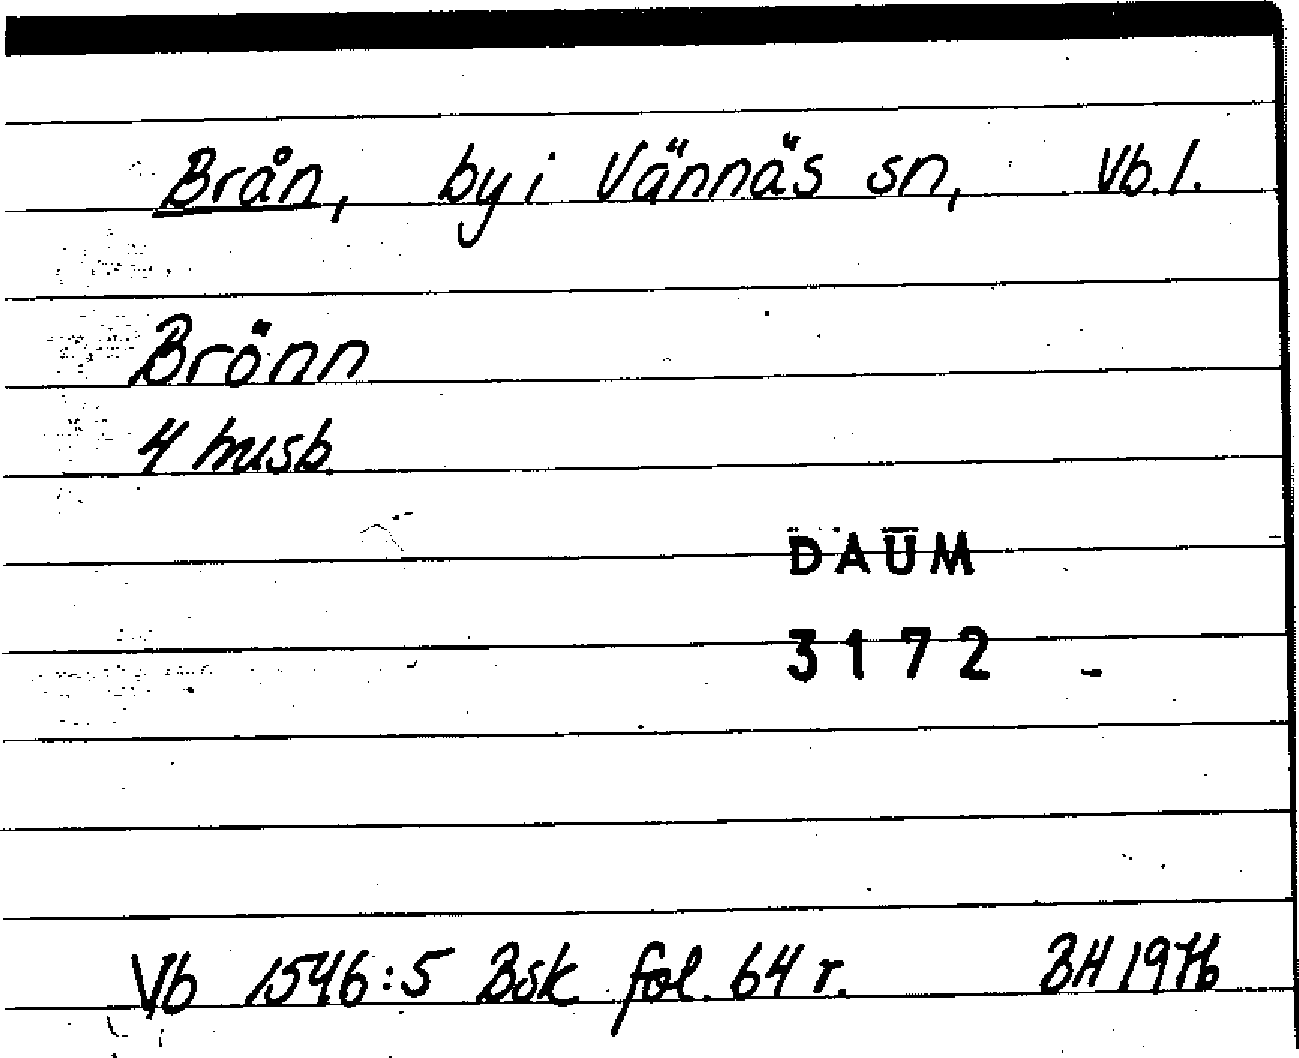 Brån, by i Vännäs sn, Vb. l.
Brönn
4 husb.
DAUM
3172
Vb 1546:5 Bsk fol. 64 r. BH 1976